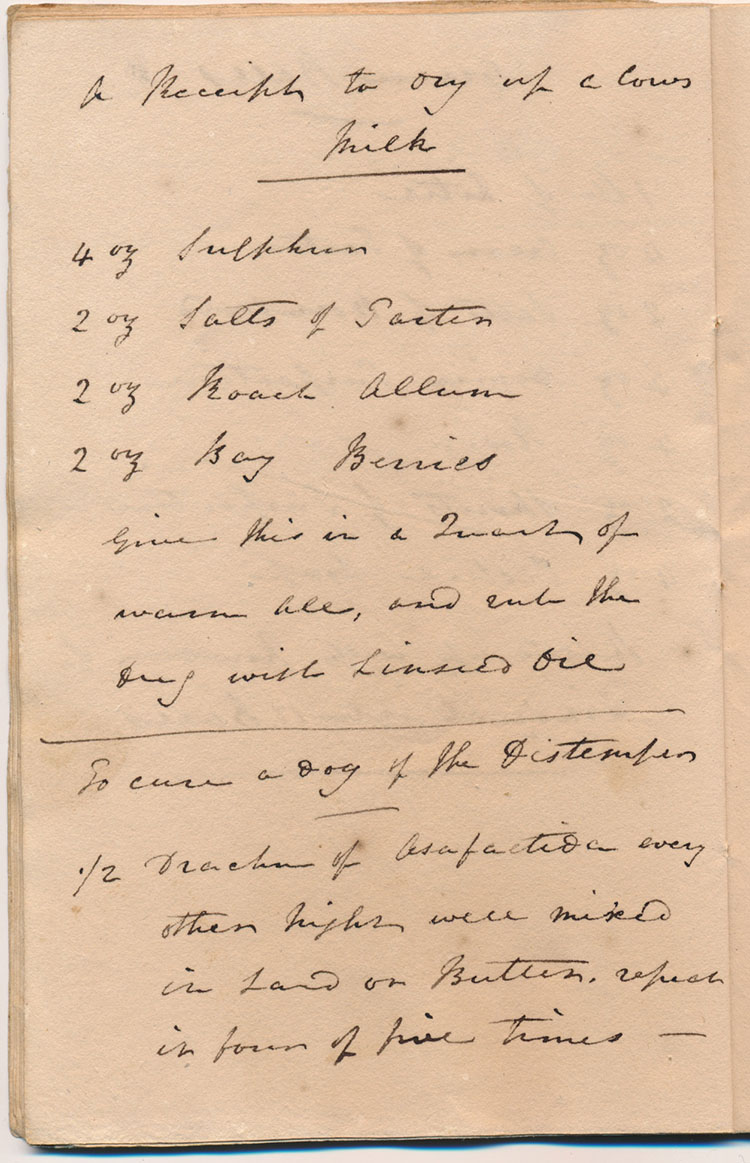 A Receipt to dry up a Cows
Milk
4 oz Sulphur
2 oz Salts of Tarter
2 oz Roach Allum
2 oz Bay Berries
Give this in a Quart of
warm Ale, and rub the
Dug with Linseed Oil
To cure a Dog of the Distemper
1/2 Drachm of Asafaetida every
other night well mixed
in Lard or Butter. repeat
it four of five times —